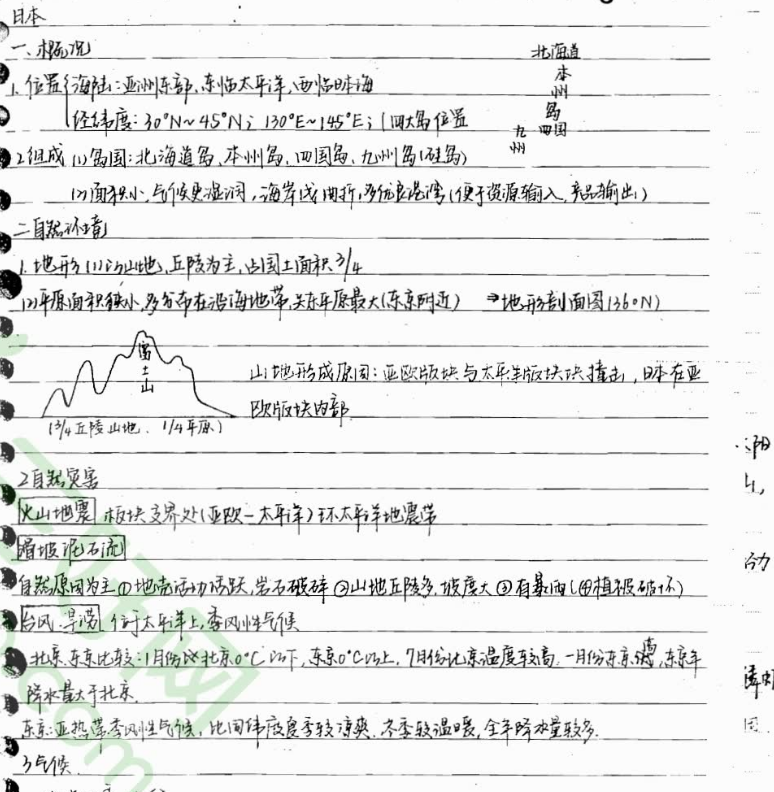 日本
一、概况
北海道
本
州
岛
四国
九
州
1.位置{海陆:亚洲东部,东临太平洋,西临日本海
经纬度:30°N~45°N;130°E~145°E;(四大岛位置
2.组成(1)岛国:北海道岛、本州岛、四国岛、九州岛(硅岛)
(2)面积小,气候更湿润,海岸线曲折,多优良港湾(便于资源输入,产品输出)
二自然环境
1.地形(1)以山地,丘陵为主,占国土面积3/4
(2)平原面积狭小,多分布在沿海地带,关东平原最大(东京附近) →地形剖面图(36°N)
富
士
山
山地形成原因:亚欧版块与太平洋版块块撞击,日本在亚
欧版块内部
(3/4丘陵山地、1/4平原)
2自然灾害
火山地震 板块交界处(亚欧-太平洋)环太平洋地震带
滑坡泥石流
自然原因为主①地壳活动活跃,岩石破碎②山地丘陵多,坡度大③有暴雨(④植被破坏)
台风、旱涝 位于太平洋上,季风性气候
北京、东京比较:1月份北京0°C以下,东京0°C以上,7月份北京温度较高,一月份东京高,东京年
降水量大于北京.
东京:亚热带季风性气候,比同纬度夏季较凉爽,冬季较温暖,全年降水量较多.
3气候